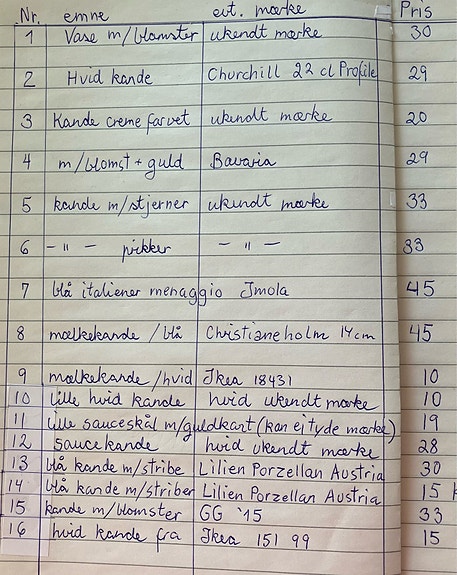 Nr. emne evt. mærke Pris
1 Vase m/blomster ukendt mærke 30
2 Hvid kande Churchill 22 cl Profile 29
3 Kande creme farvet ukendt mærke 20
4 m/blomst + guld Bavaria 29
5 kande m/stjerner ukendt mærke 33
6 - " - prikker - " - 33
7 blå italiener menaggio Imola 45
8 mælkekande /blå Christianeholm 14 cm 45
9 mælkekande /hvid Ikea 18431 10
10 lille hvid kande hvid ukendt mærke 10
11 lille sauceskål m/guldkant (kan ej tyde mærke) 19
12 saucekande hvid ukendt mærke 28
13 blå kande m/stribe Lilien Porzellan Austria 30
14 blå kande m/striber Lilien Porzellan Austria 15
15 kande m/blomster GG '15 33
16 hvid kande fra Ikea 151 99 15